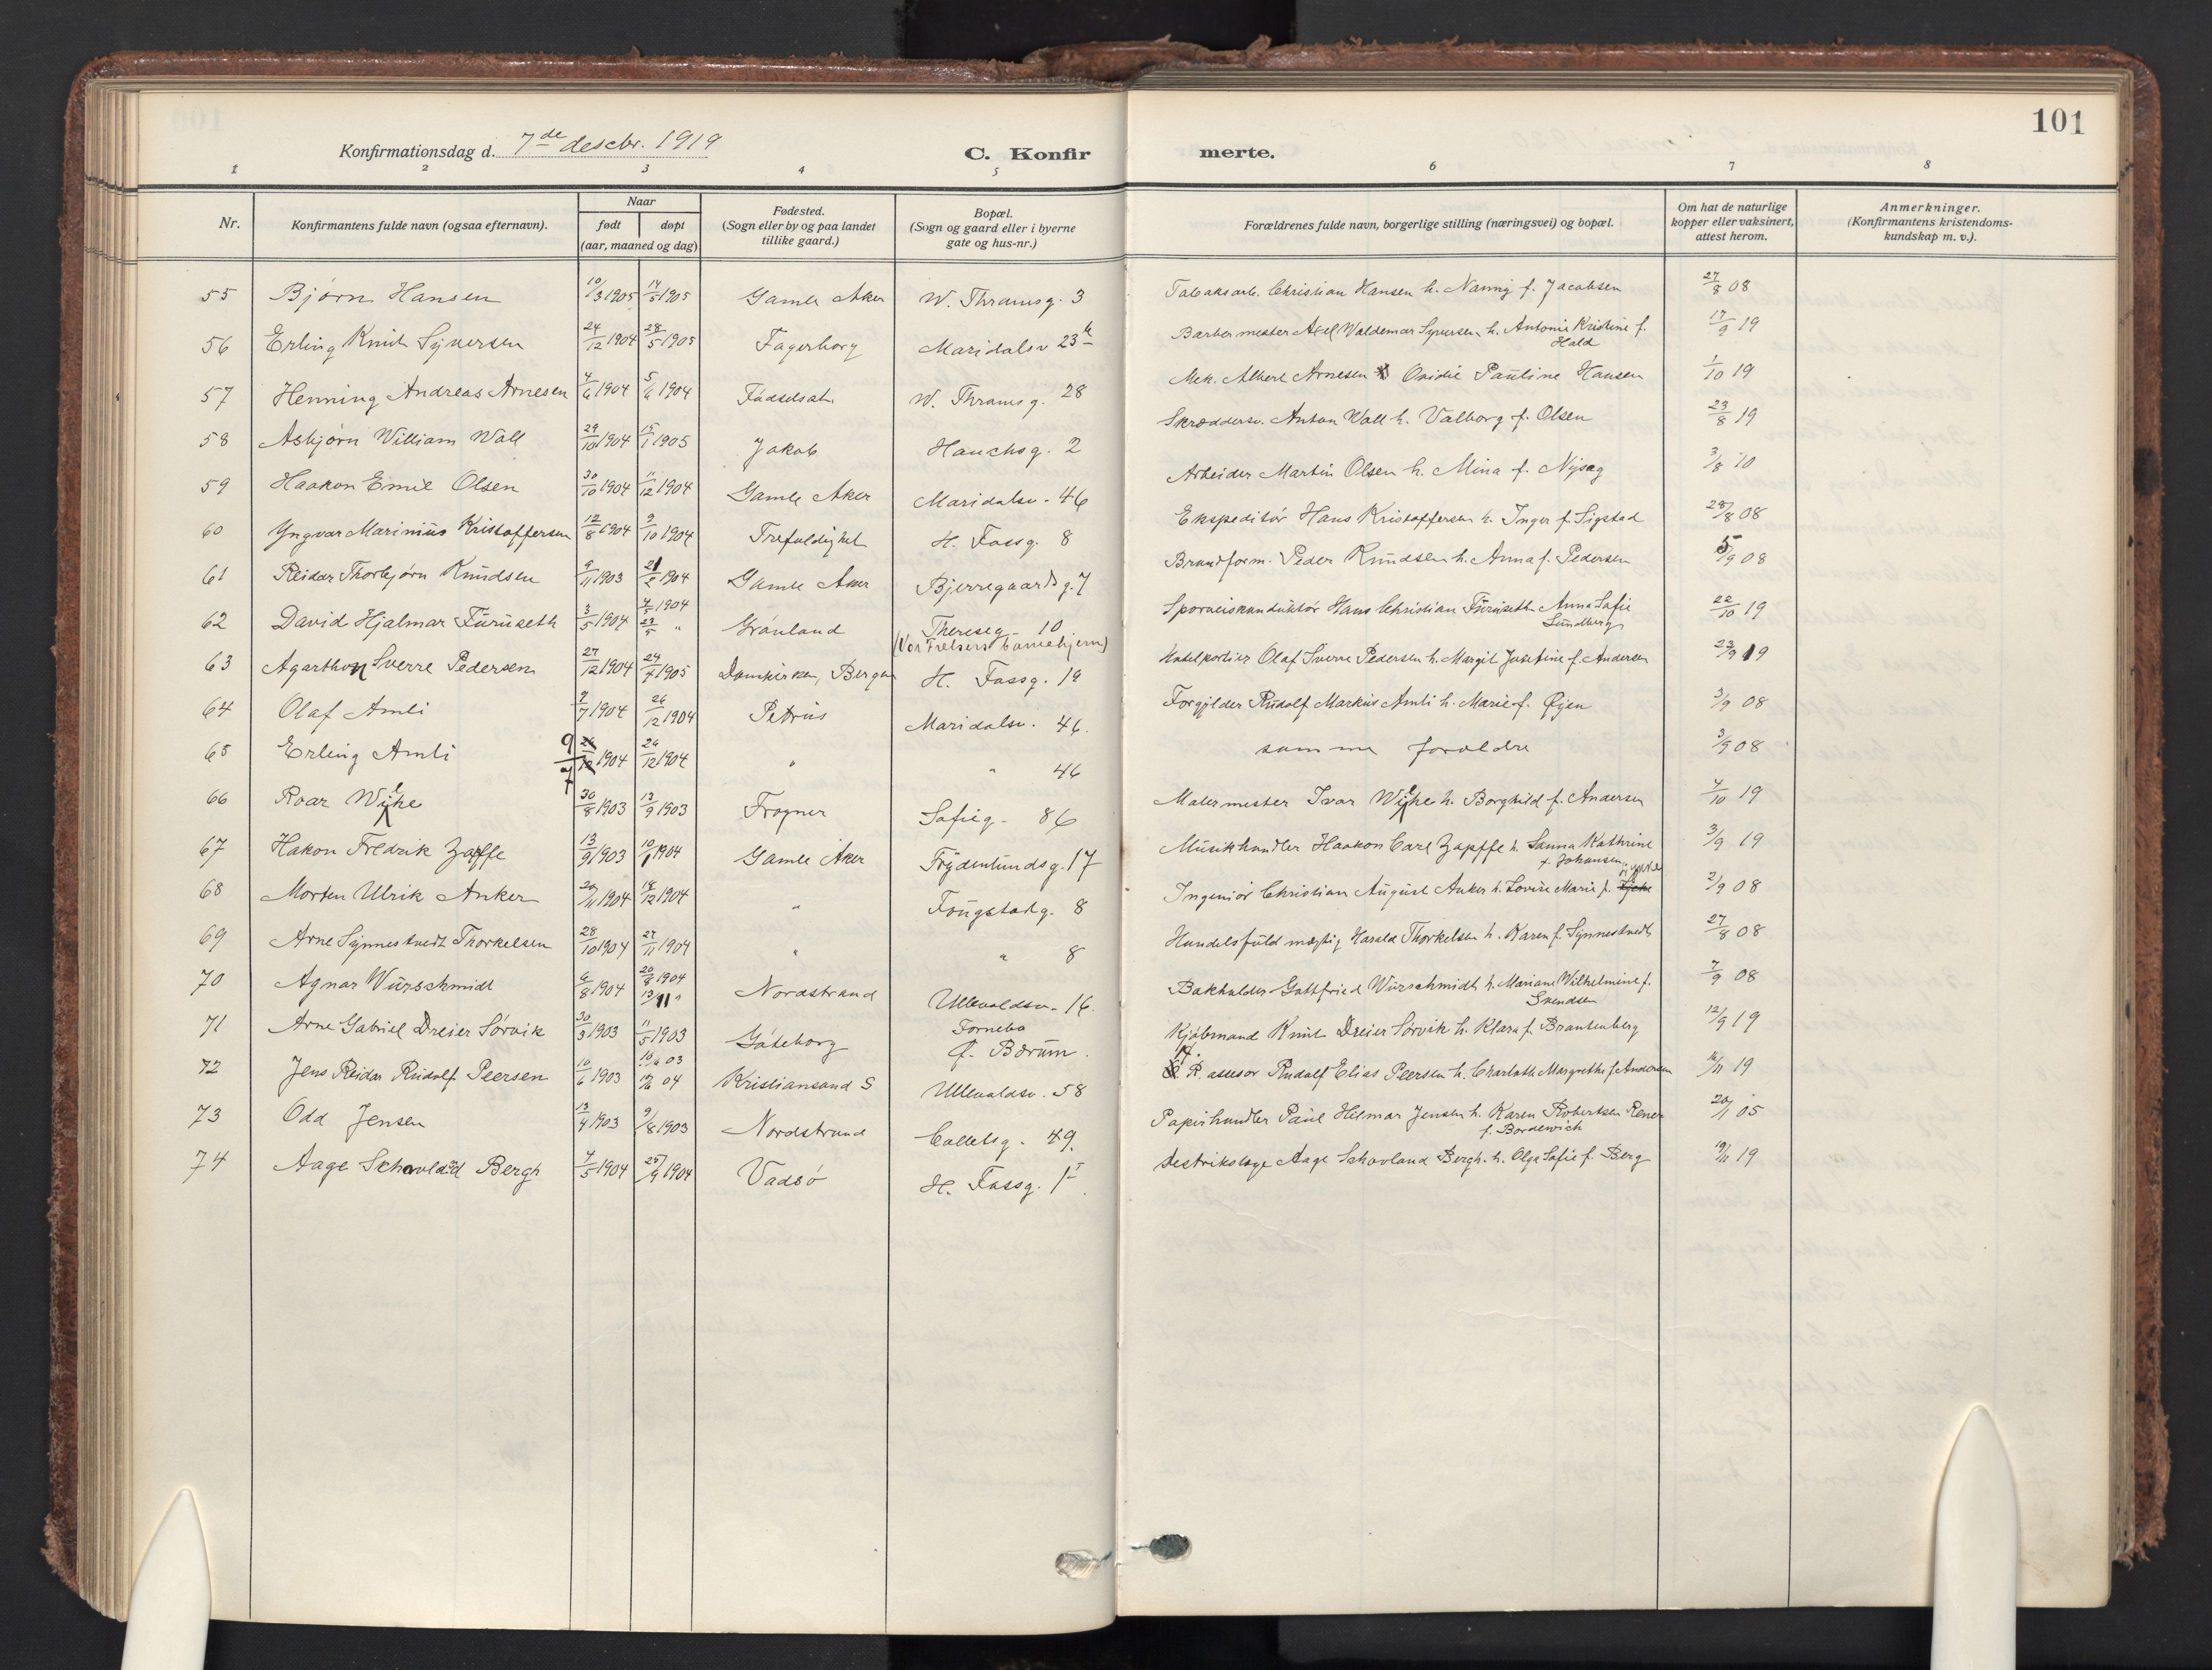 101
Konfirmationsdag d. 7de desebr. 1919
C. Konfirmerte.
1 2 3 4 5 6 7 8
Nr.
Konfirmantens fulde navn (ogsaa efternavn).
Naar
født
døpt
(aar, maaned og dag)
Fødested.
(Sogn eller by og paa landet
tillike gaard.)
Bopæl.
(Sogn og gaard eller i byerne
gate og hus-nr.)
Forældrenes fulde navn, borgerlige stilling (næringsvei) og bopæl.
Om hat de naturlige
kopper eller vaksinert,
attest herom.
Anmerkninger.
(Konfirmantens kristendoms-
kundskap m. v.).
55 Bjørn Hansen 10/3 1905 14/5 1905 Gamle Aker W. Thramsg. 3 Tabaksarb. Christian Hansen h. Nanny f. Jacobsen 27/8 08
56 Erling Knut Syversen 24/12 1904 28/5 1905 Fagerborg Maridalsv 23 b Barbermester Axel Waldemar Syversen h. Antonie Kristine f. Hald 17/9 19
57 Henning Andreas Arnesen 4/6 1904 5/6 1904 Fødselsst. W. Thramsg. 28 Mek. Albert Arnesen Ovidie Pauline Hansen 1/10 19
58 Asbjørn William Wall 29/10 1904 15/1 1905 Jakob Hauchsg. 2 Skræddersv. Anton Wall h. Valborg f. Olsen 23/8 19
59 Haakon Emil Olsen 30/10 1904 11/12 1904 Gamle Aker Maridalsv. 46 Arbeider Martin Olsen h. Mina f. Nysæg 3/8 10
60 Yngvar Marinius Kristoffersen 12/8 1904 9/10 1904 Trefoldighet H. Fossg. 8 Ekspeditør Hans Kristoffersen h. Inger f. Sigstad 28/8 08
61 Reidar Thorbjørn Knudsen 9/11 1903 21/2 1904 Gamle Aker Bjerregaardsg. 7 Brandform. Peder Knudsen h. Anna f. Pedersen 5/9 08
62 David Hjalmar Furuseth 3/5 1904 4/5 1904 23/5 " Grønland Thereseg. 10 (Vor Frelsers barnehjem) Sporveiskonduktør Hans Christian Furuseth Anna Sofie Lundberg 22/10 19
63 Agarthon Sverre Pedersen 27/12 1904 24/7 1905 Domkirken, Bergen H. Fossg. 19 Hotelportier Olaf Sverre Pedersen h. Margit Josefine f. Andersen 23/9 19
64 Olaf Amli 9/7 1904 26/12 1904 Petrus Maridalsv. 46. Forgylder Rudolf Markus Amli h. Marie f. Øyen 3/9 08
65 Erling Amli 9/7 1904 26/12 1904 " " 46 samme foreldre 3/9 08
66 Roar Wiehe 30/8 1903 13/9 1903 Frogner Sofieg. 86 Malermester Ivar Wiehe h. Borghild f. Andersen 7/10 19
67 Hakon Fredrik Zapffe 13/9 1903 10/1 1904 Gamle Aker Frydenlundsg. 17 Musikhandler Haakon Carl Zapffe h. Sanna Kathrine f. Johansen 3/9 19
68 Morten Ulrik Anker 20/11 1904 18/12 1904 " Fougstadg. 8 Ingeniør Christian August Anker h. Lovise Marie f. 2/9 08
69 Arne Synnestvedt Thorkelsen 28/10 1904 27/11 1904 " " 8 Handelsfuldmægtig Harald Thorkelsen h. Karen f. Synnestvedt 27/8 08
70 Agnar Würschmidt 6/8 1904 20/8 1904 13/11 " Nordstrand Ullevoldsv. 16. Bokholder Gottfried Würschmidt h. Mariane Wilhelmine f. Svendsen 7/9 08
71 Arne Gabriel Dreier Sørvik 30/3 1903 11/5 1903 Gøteborg Fornebo f. Bærum. Kjøbmand Knut Dreier Sørvik h. Klara f. Brantenberg 12/9 19
72 Jens Reidar Rudolf Peersen 10/6 1903 10/6 03 17/6 04 Kristiansand S Ullevoldsv. 58 H. R. assesor Rudolf Elias Peersen h. Charlotte Margrethe f. Andersen 16/11 19
73 Odd Jensen 13/4 1903 9/8 1903 Nordstrand Colletsg. 49. Papirhandler Paul Hilmar Jensen h. Karen Robertsen Rener f. Bordewich 20/1 05
74 Aage Schavland Bergh 4/5 1904 25/9 1904 Vadsø H. Fossg. 1 I Destriktslæge Aage Schavland Bergh. h. Olga Sofie f. Berg 19/11 19